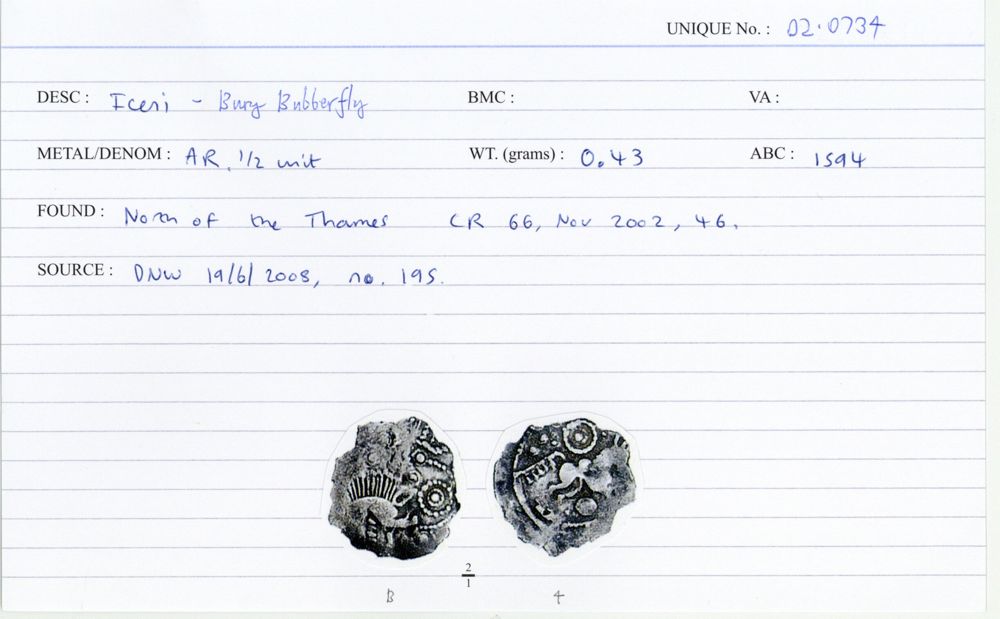 UNIQUE No. : 02.0734
DESC : Iceni - Bury Bubberfly BMC : VA :
METAL/DENOM : AR, 1/2 unit WT. (grams) : 0.43 ABC : 1594
FOUND : North of the Thames CR 66, Nov 2002, 46.
SOURCE : DNW 19/6/2008, no. 195.
2
1
B 4